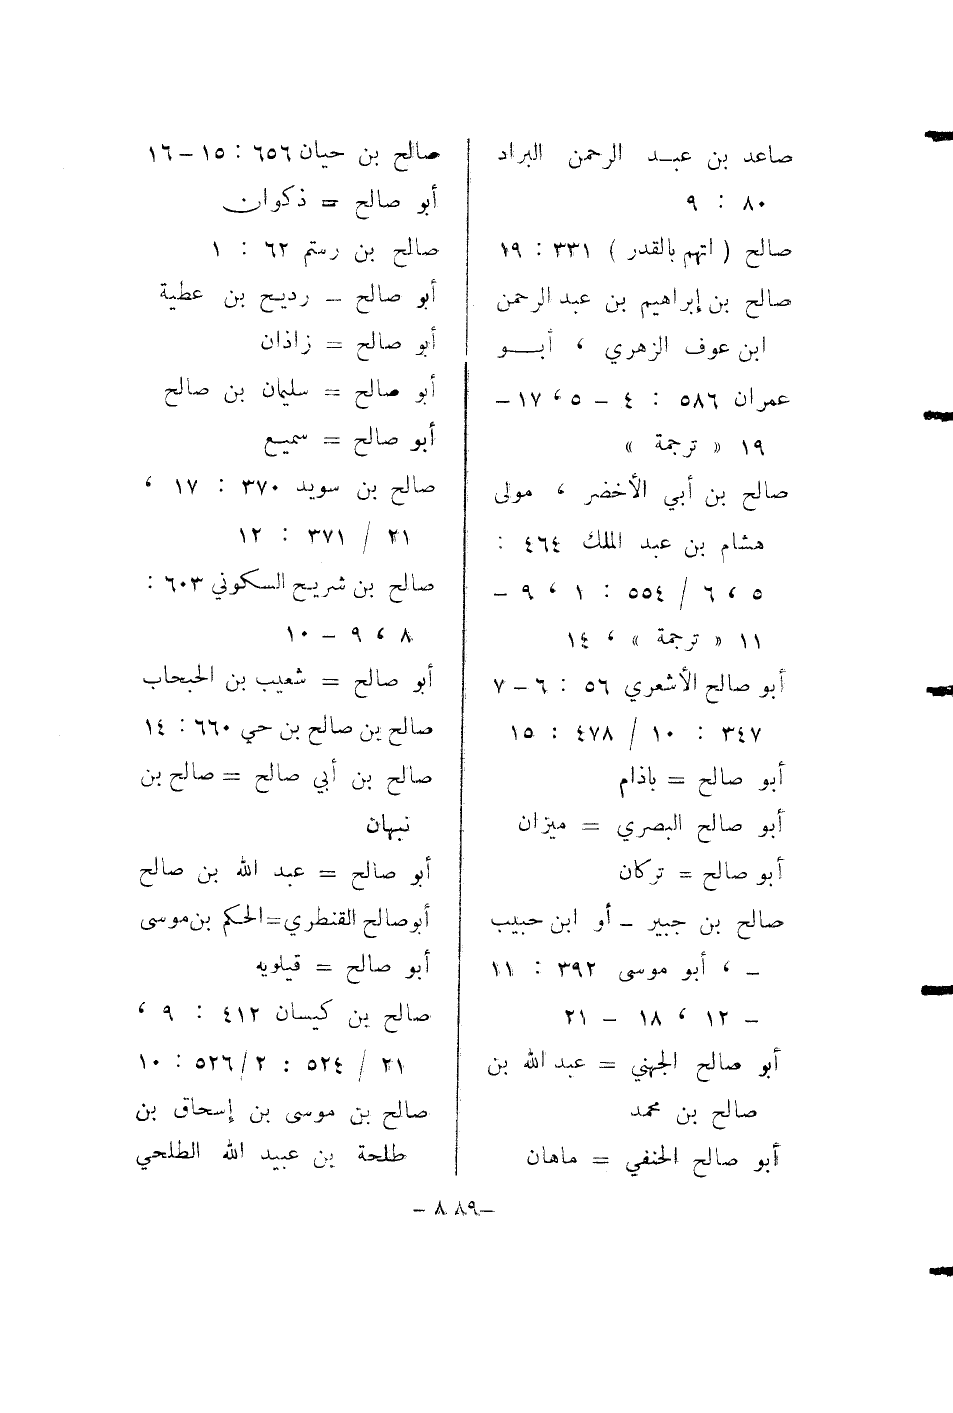 صاعد بن عبد الرحمن البراد
٨٠ : ٩
صالح ( اتهم بالقدر ) ٣٣١ : ١٩
صالح بن إبراهيم بن عبد الرحمن
ابن عوف الزهري ، أبو
عمران ٥٨٦ : ٤ - ٥ ، ١٧ -
١٩ « ترجمة »
صالح بن أبي الأخضر ، مولى
هشام بن عبد الملك ٤٦٤ :
٥ ، ٦ / ٥٥٤ : ١ ، ٩ -
١١ « ترجمة » ، ١٤
أبو صالح الأشعري ٥٦ : ٦ - ٧
٣٤٧ : ١٠ / ٤٧٨ : ١٥
أبو صالح = باذام
أبو صالح البصري = ميزان
أبو صالح = تركان
صالح بن جبير - أو ابن حبيب
- ، أبو موسى ٣٩٢ : ١١
- ١٢ ، ١٨ - ٢١
أبو صالح الجهني = عبد الله بن
صالح بن محمد
أبو صالح الحنفي = ماهان
صالح بن حيان ٦٥٦ : ١٥ - ١٦
أبو صالح = ذكوان
صالح بن رستم ٦٢ : ١
أبو صالح - رديح بن عطية
أبو صالح = زاذان
أبو صالح = سليمان بن صالح
أبو صالح = سميع
صالح بن سويد ٣٧٠ : ١٧ ،
٢١ / ٣٧١ : ١٢
صالح بن شريح السكوني ٦٠٣ :
٨ ، ٩ - ١٠
أبو صالح = شعيب بن الحبحاب
صالح بن صالح بن حي ٦٦٠ : ١٤
صالح بن أبي صالح = صالح بن
نبهان
أبو صالح = عبد الله بن صالح
أبو صالح القنطري = الحكم بن موسى
أبو صالح = قيلويه
صالح بن كيسان ٤١٢ : ٩ ،
٢١ / ٥٢٤ : ٢ / ٥٢٦ : ١٠
صالح بن موسى بن إسحاق بن
طلحة بن عبيد الله الطلحي
- ٨٨٩ -